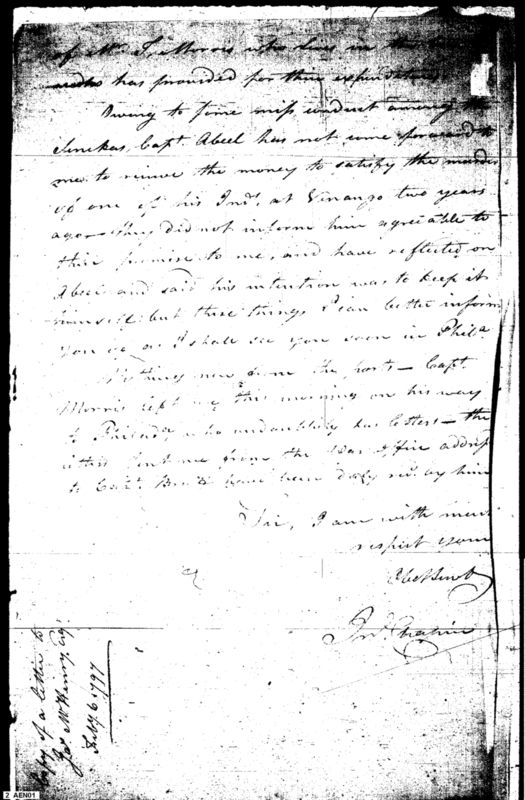 of Mr. T. Morris who lives in the
has provided for their expenditures.
Owing to some miss conduct among the
Senekas, Capt. Abeel has not come forward to
me to receive the money to satisfy the murder
of one of his Inds. at Venango two years
ago they did not inform him agreeable to
their promise to me, and have reflected on
Abeel and said his intention was to keep it
himself but these things I can better inform
you of as I shall see you soon in Phila.
Nothing new from the posts — Capt.
Morris left me this morning on his way
to Philada. who undoubtedly has letters — the
letters sent me from the War Office address
to Capt. Brant have been duly recd. by him
Sir, I am with much
respect your
Obet. Servt.
Isrl. Chapin
Copy of a letter to
Jas. McHenry, Esqr.
Feby. 6. 1797
2_AEN01